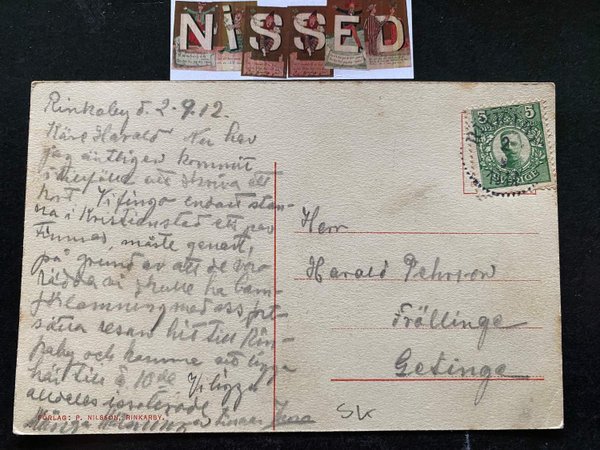 NiSSED
Rinkaby d. 2-9.12.
Käre Harald Nu har
jag äntligen kommit
i tillfälle att skriva ett
kort. Vi fingo endast stan-
na i Kristianstad ett par
timmar, måste genast,
på grund av att de voro
rädda vi skulle ha barn-
förlamning med oss fort-
sätta resan hit till Rin-
kaby och komma att ligga
här till d. 10de. Vi ligga
alldeles isolerade
Många hälsningar
FÖRLAG: P. NILSSON, RINKARBY.
5 5
SVERIGE
Herr
Harald Pehrson
Fröllinge
Getinge
SK